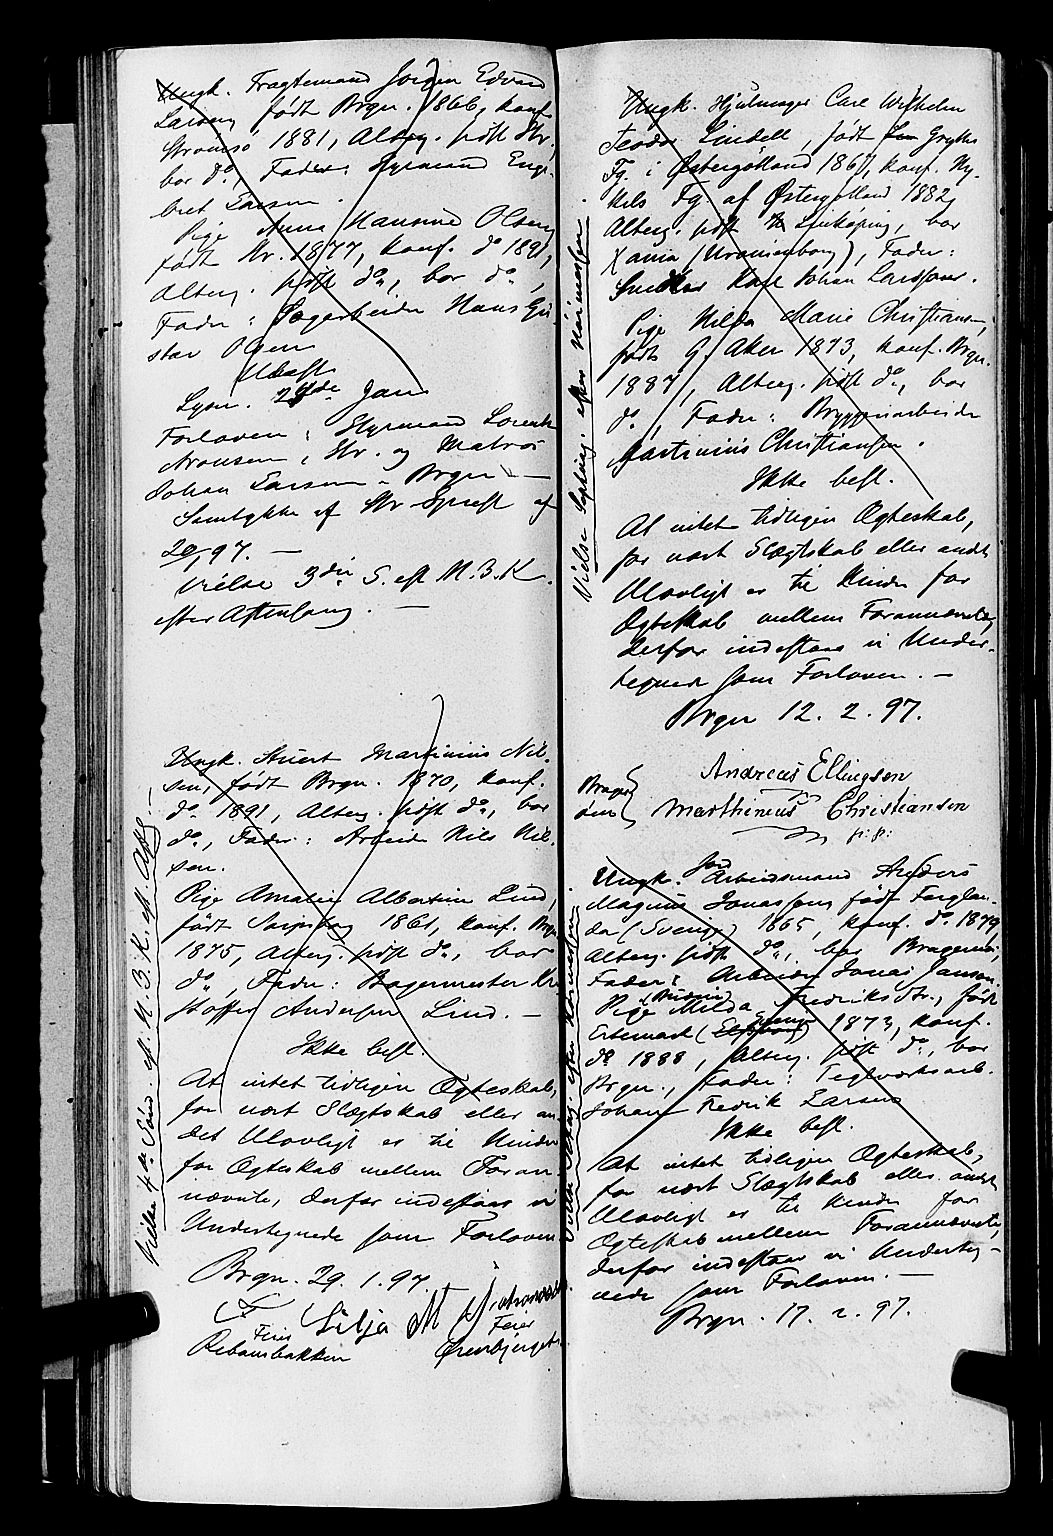 Ungk. Fragtemand Jørgen Edvard
Larsen, født Brgn. 1866, konf.
Strømsø 1881, Alterg. sidst Str.,
bor do, Fader: Styrmand Enge-
bret Larsen.
Pige Anna Hansine Olsen,
født Str. 1877, konf. do 1891,
Alterg. sidst do, bor do,
Fader: Sagarbeider Hans Gu-
stav Olsen
Lysn. 2den Jan
Forlovere: Styrmand Lorents
Aronsen, Str. og Matros
Johan Larsen, Brgn —
Samtykke af Str. Sprest af
97. —
Vielse 3die S. eft. H. 3. K.
efter Aftensang. —
Vielse 4de Sønd. eft. H. 3. K. eft. Afts. —
Ungk. Stuert Martinius Nil-
sen, født Brgn. 1870, konf.
do 1891, Alterg. sidst do, bor
do, Fader: Arbeider Nils Nil-
sen.
Pige Amalie Albertine Lind,
født Sarpsborg 1861, konf. Brgn
1875, Alterg. sidst do, bor
do, Fader: Bagermester Kri
stoffer Andersen Lind. —
Ikke besl.
At intet tidligere Ægteskab,
for nært Slægtskab eller an
det Ulovligt er til Hinder
for Ægteskab mellem Foran-
nævnte, derfor indestaar vi
Undertegnede som Forlovere
Brgn. 29. 1. 97.
F Silja M
Feier Feier
Rebansbakken Ørenbjerget
Vielse Søndag. efter Høimessen.
Ungk. Hjulmager Carl Wilhelm
Teodor Lindell, født Gryts
Sg. i Østergøtland 1867, konf. Ny-
kils Sg. af Østergøtland 1882,
Alterg. sidst Linkøping, bor
Xania (Uranienborg), Fader:
Snedker Karl Johan Larsson.
Pige Hilda Marie Christiansen,
født Ø. Aker 1873, konf. Brgn.
1887, Alterg. sidst do, bor
do, Fader: Bryggeriarbeider
Martinius Christiansen.
Ikke besl.
At intet tidligere Ægteskab,
for nært Slægtskab eller andet
Ulovligt er til Hinder for
Ægteskab mellem Forannævnte,
derfor indestaar vi Under-
tegnede som Forlovere. —
Brgn 12. 2. 97.
Andreas Ellingsen
Brager
øen Marthineus Christiansen
p: p:
Ungk. Arbeidsmand Anders
Magnus Jonassen født Fargelan-
da (Sverige) 1865, konf. do 1879,
Alterg. sidst do, bor Bragernes,
Fader: Arbeider Jonas Janson.
Pige Hilda Fredriksdtr., født
Ertemark (Sverige) 1873, konf.
do 1888, Alterg. sidst do, bor
Brgn., Fader: Teglverksarb.
Johan Fredrik Larsen
Ikke besl.
At intet tidligere Ægteskab,
for nært Slægtskab eller andet
Ulovligt er til Hinder for
Ægteskab mellem Forannævnte,
derfor indestaar vi Underteg-
nede som Forlovere. —
Brgn. 17. 2. 97.